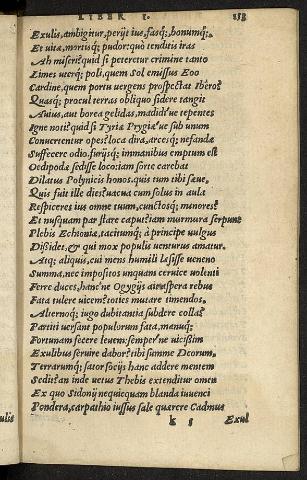 LIBER I.
Exulis, ambigitur, perijt ius, fasq́;, bonumq́;,
Et uitæ, mortisq́; pudor: quo tenditis iras
Ah miseri? quid si peteretur crimine tanto
Limes uterq; poli, quem Sol emissus Eoo
Cardine, quem portu uergens prospectat Ibero?
Quasq́; procul terras obliquo sidere tangit
Auius, aut borea gelidas, madidiue tepentes
Igne noti? quid si Tyriæ Prygiæ ue sub unum
Conuertentur opes? loca dira, arcesq́; nefandæ
Suffecere odio, furijsq́; immanibus emptum est
Oedipodæ sedisse loco: iam sorte carebat
Dilatus Polynicis honos. quis tum tibi sæue,
Quis fuit ille dies? uacua cum solus in aula
Respiceres ius omne tuum, cunctosq́; minores?
Et nusquam par stare caput? iam murmura serpunt
Plebis Echioniæ, tacitumq́; à principe uulgus
Dissidet, & qui mox populis uenturus amatur.
Atq; aliquis, cui mens humili læsisse ueneno
Summa, nec impositos unquam ceruice uolenti
Ferre duces, hanc'ne Ogygijs ait aspera rebus
Fata tulere uicem? toties mutare timendos,
Alternoq́; iugo dubitantia subdere colla?
Partiti uersant populorum fata, manuq́;
Fortunam fecere leuem: semper'ne uicissim
Exulibus seruire dabor? tibi summe Deorum,
Terrarumq́; sator socijs hanc addere mentem
Sedit? an inde uetus Thebis extenditur omen
Ex quo Sidonij nequicquam blanda iuuenci
Pondera, carpathio iussus sale quærere Cadmus
k 5 Exul